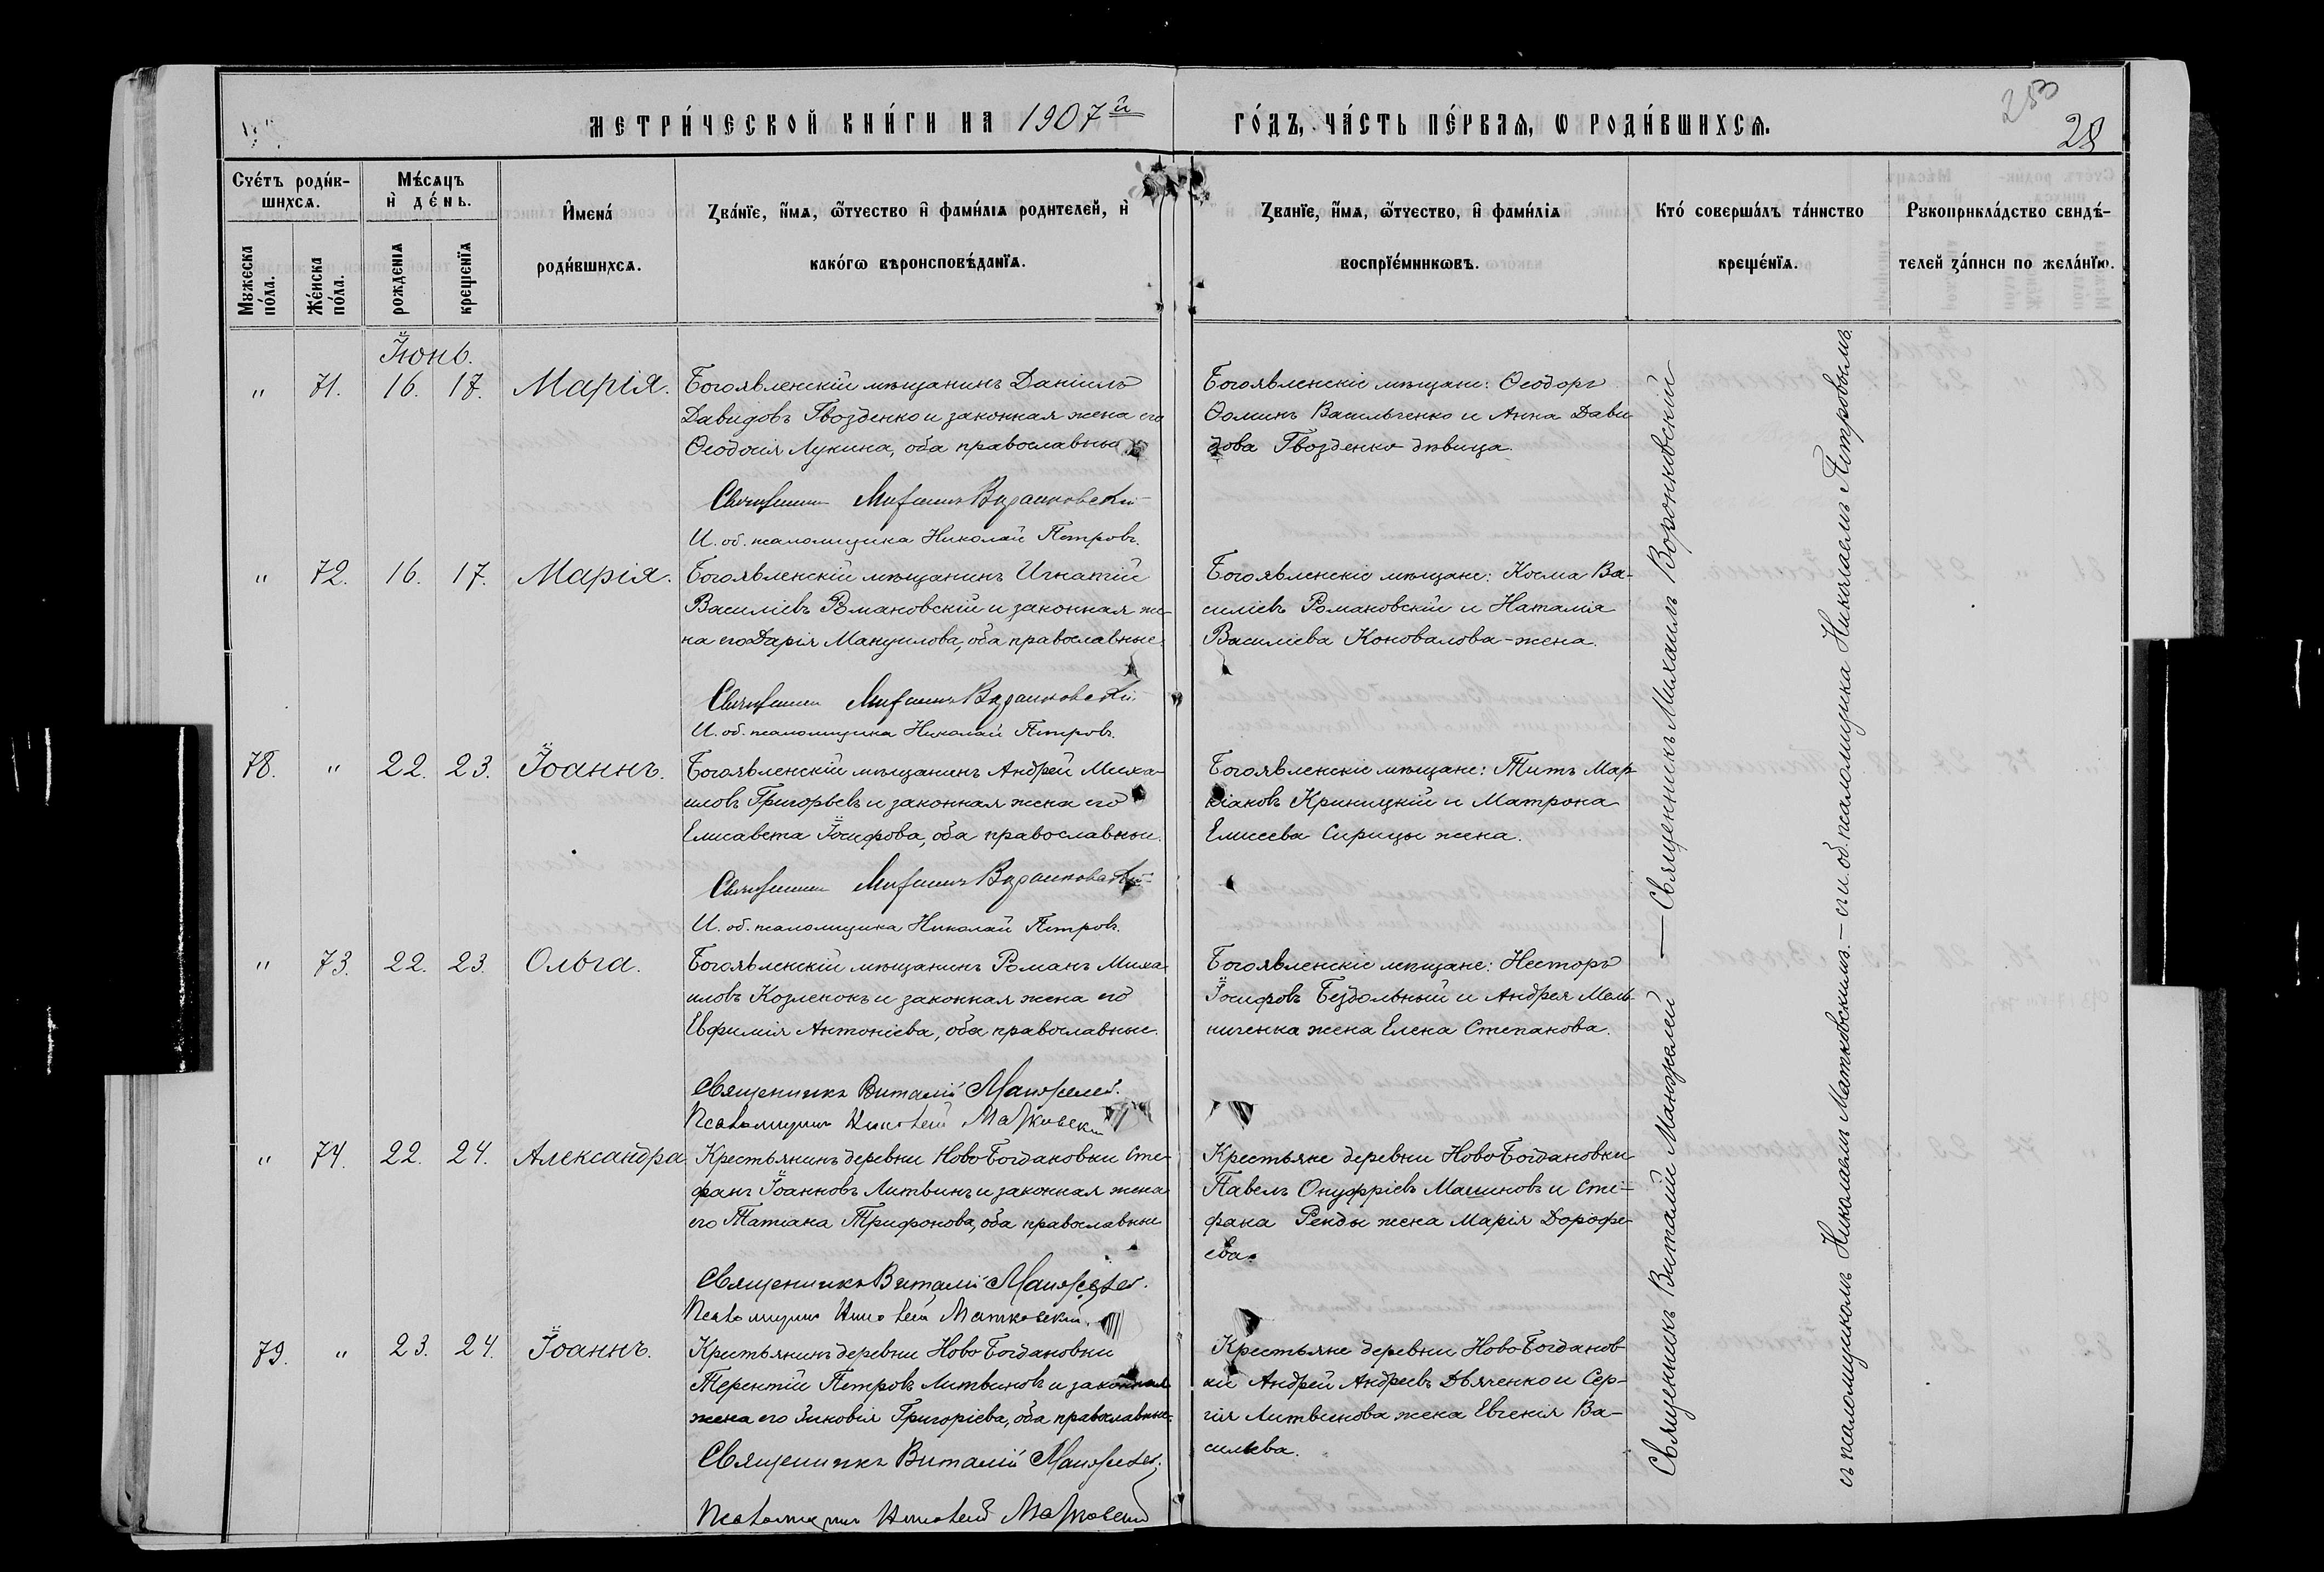 МЕТРИ́ЧЕСКОЙ КНИ́ГИ НА 1907й
ГО́ДЪ, ЧА́СТЬ ПЕ́РВАѦ, Ѡ РОДИ́ВШИХСѦ.
253
28
Счéтъ роди́в-
шихсѧ.
Мꙋжеска
по́ла.
Же́нска
по́ла.
Мѣ́сѧцъ
и҆ де́нь.
рожденїѧ
крещенїѧ
И҆мена́
роди́вшихсѧ.
Зва́нїе, и҆́мѧ, ѻ҆́тчество и҆ фами́лїѧ родителей, и҆
како́гѡ вѣроисповѣ́данїѧ.
Зва́нїе, и҆́мѧ, ѻ҆́тчество, и҆ фами́лїѧ
воспрїе́мникѡвъ.
Кто́ соверша́лъ та́инство
креще́нїѧ.
Рꙋкоприкла́дство свидѣ́-
телей за́писи по жела́нїю.
Іюнь.
" 71. 16. 17. Марія.
Богоявленскій мѣщанинъ Даніилъ
Давидовъ Гвозденко и законная жена его
Ѳеодосія Лукина, оба православные
Священникъ Михаилъ Воронковскій
И. об. псаломщика Николай Петровъ.
Богоявленскіе мѣщане: Ѳеодоръ
Ѳоминъ Васильченко и Анна Дави
дова Гвозденко дѣвица.
" 72. 16. 17. Марія.
Богоявленскій мѣщанинъ Игнатій
Василіевъ Романовскій и законная же-
на его Дарія Мануилова, оба православные.
Священникъ Михаилъ Воронковскій
И. об. псаломщика Николай Петровъ.
Богоявленскіе мѣщане: Косма Ва-
силіевъ Романовскій и Наталія
Василіева Коновалова - жена.
78. " 22. 23. Іоаннъ.
Богоявленскій мѣщанинъ Андрей Миха-
иловъ Григорьевъ и законная жена его
Елисавета Іосифова, оба православные.
Священникъ Михаилъ Воронковскій
И. об. псаломщика Николай Петровъ.
Богоявленскіе мѣщане: Титъ Мар
кіановъ Криницкій и Матрона
Елисеева Сирицы жена.
" 73. 22. 23. Ольга.
Богоявленскій мѣщанинъ Романъ Миха
иловъ Козленокъ и законная жена его
Евфимія Антоніева, оба православные.
Священникъ Виталій Манжелей.
Псаломщикъ Николай Матковскій
Богоявленскіе мѣщане: Несторъ
Іосифовъ Бездольный и Андрея Мель-
ниченка жена Елена Степанова.
" 74. 22. 24. Александра
Крестьянинъ деревни НовоБогдановки Сте-
фанъ Іоанновъ Литвинъ и законная жена
его Татіана Трифонова, оба православные
Священникъ Виталій Манжелей.
Псаломщикъ Николай Матковскій.
Крестьяне деревни НовоБогдановки
Павелъ Онуфріевъ Машиновъ и Сте-
фана Ренды жена Марія Дорофе-
ева.
79. " 23. 24. Іоаннъ.
Крестьянинъ деревни НовоБогдановки
Терентій Петровъ Литвиновъ и законная
жена его Зиновія Григоріева, оба православные.
Священникъ Виталій Манжелей.
Псаломщикъ Николай Матковскій
Крестьяне деревни НовоБогданов
ки Андрей Андреевъ Дяченко и Сер-
гія Литвинова жена Евгенія Ва-
сильева.
Священникъ Виталій Манжелей — Священникъ Михаилъ Воронковскій
съ псаломщикомъ Николаемъ Матковскимъ. — съ и. об. псаломщика Николаемъ Петровымъ.